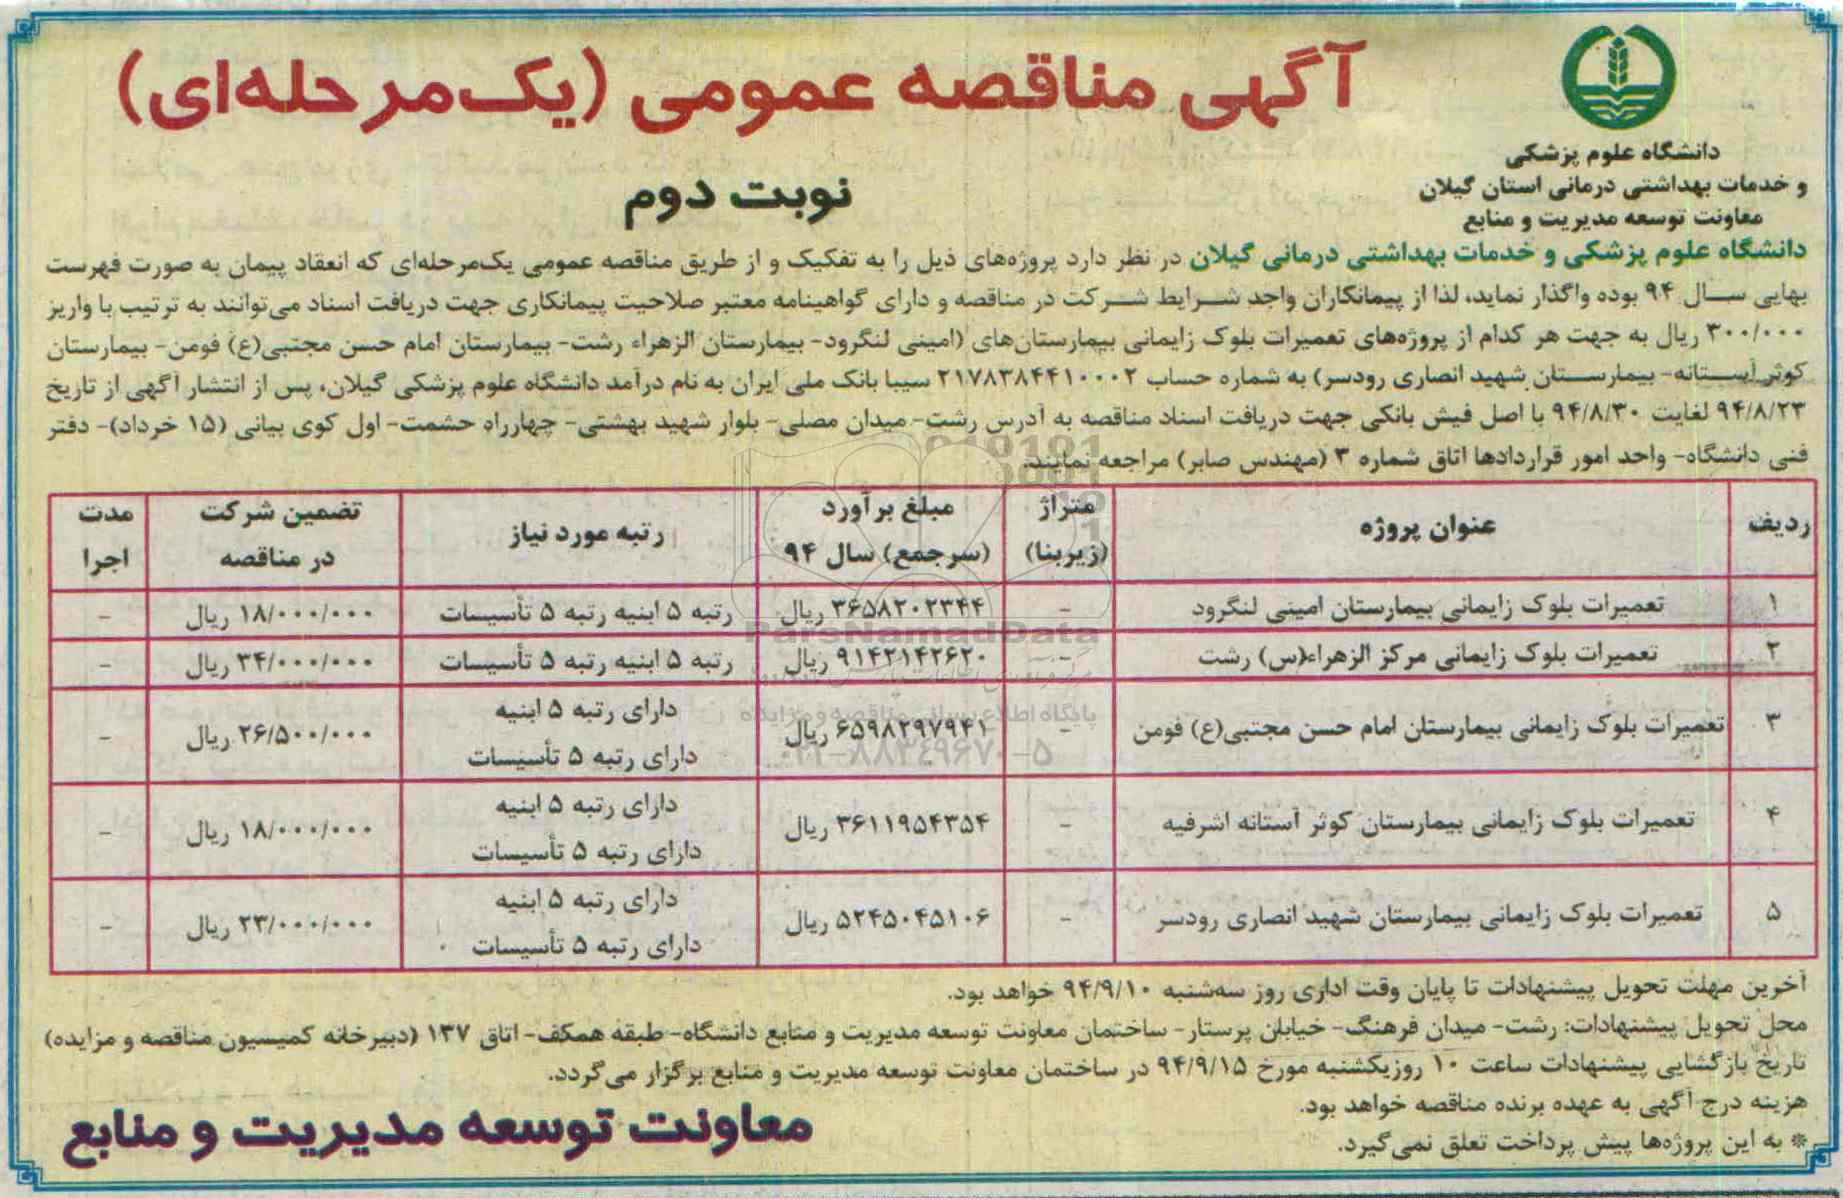 آگهی مناقصه عمومی (یک‌مرحله‌ای)
نوبت دوم
دانشگاه علوم پزشکی
و خدمات بهداشتی درمانی استان گیلان
معاونت توسعه مدیریت و منابع
دانشگاه علوم پزشکی و خدمات بهداشتی درمانی گیلان در نظر دارد پروژه‌های ذیل را به تفکیک و از طریق مناقصه عمومی یک‌مرحله‌ای که انعقاد پیمان به صورت فهرست
بهایی سال ۹۴ بوده واگذار نماید، لذا از پیمانکاران واجد شرایط شرکت در مناقصه و دارای گواهینامه معتبر صلاحیت پیمانکاری جهت دریافت اسناد می‌توانند به ترتیب با واریز
۳۰۰/۰۰۰ ریال به جهت هر کدام از پروژه‌های تعمیرات بلوک زایمانی بیمارستان‌های (امینی لنگرود- بیمارستان الزهراء رشت- بیمارستان امام حسن مجتبی(ع) فومن- بیمارستان
کوثر آستانه- بیمارستان شهید انصاری رودسر) به شماره حساب ۲۱۷۸۳۸۴۴۱۰۰۰۲ سیبا بانک ملی ایران به نام درآمد دانشگاه علوم پزشکی گیلان، پس از انتشار آگهی از تاریخ
۹۴/۸/۲۳ لغایت ۹۴/۸/۳۰ با اصل فیش بانکی جهت دریافت اسناد مناقصه به آدرس رشت- میدان مصلی- بلوار شهید بهشتی- چهارراه حشمت- اول کوی بیانی (۱۵ خرداد)- دفتر
فنی دانشگاه- واحد امور قراردادها اتاق شماره ۳ (مهندس صابر) مراجعه نمایند.
ردیف عنوان پروژه متراژ (زیربنا) مبلغ برآورد (سرجمع) سال ۹۴ رتبه مورد نیاز تضمین شرکت در مناقصه مدت اجرا
۱ تعمیرات بلوک زایمانی بیمارستان امینی لنگرود - ۳۶۵۸۲۰۲۳۴۴ ریال رتبه ۵ ابنیه رتبه ۵ تأسیسات ۱۸/۰۰۰/۰۰۰ ریال -
۲ تعمیرات بلوک زایمانی مرکز الزهراء(س) رشت - ۹۱۴۲۱۴۲۶۲۰ ریال رتبه ۵ ابنیه رتبه ۵ تأسیسات ۳۴/۰۰۰/۰۰۰ ریال -
۳ تعمیرات بلوک زایمانی بیمارستان امام حسن مجتبی(ع) فومن - ۶۵۹۸۲۹۷۹۴۱ ریال دارای رتبه ۵ ابنیه دارای رتبه ۵ تأسیسات ۲۶/۵۰۰/۰۰۰ ریال -
۴ تعمیرات بلوک زایمانی بیمارستان کوثر آستانه اشرفیه - ۳۶۱۱۹۵۴۳۵۴ ریال دارای رتبه ۵ ابنیه دارای رتبه ۵ تأسیسات ۱۸/۰۰۰/۰۰۰ ریال -
۵ تعمیرات بلوک زایمانی بیمارستان شهید انصاری رودسر - ۵۲۴۵۰۴۵۱۰۶ ریال دارای رتبه ۵ ابنیه دارای رتبه ۵ تأسیسات ۲۳/۰۰۰/۰۰۰ ریال -
ParsNamadData
پایگاه اطلاع رسانی مناقصه و مزایده
۰۲۱-۸۸۳۴۹۶۷۰-۵
آخرین مهلت تحویل پیشنهادات تا پایان وقت اداری روز سه‌شنبه ۹۴/۹/۱۰ خواهد بود.
محل تحویل پیشنهادات: رشت- میدان فرهنگ- خیابان پرستار- ساختمان معاونت توسعه مدیریت و منابع دانشگاه- طبقه همکف- اتاق ۱۳۷ (دبیرخانه کمیسیون مناقصه و مزایده)
تاریخ بازگشایی پیشنهادات ساعت ۱۰ روز یکشنبه مورخ ۹۴/۹/۱۵ در ساختمان معاونت توسعه مدیریت و منابع برگزار می‌گردد.
هزینه درج آگهی به عهده برنده مناقصه خواهد بود.
* به این پروژه‌ها پیش پرداخت تعلق نمی‌گیرد.
معاونت توسعه مدیریت و منابع